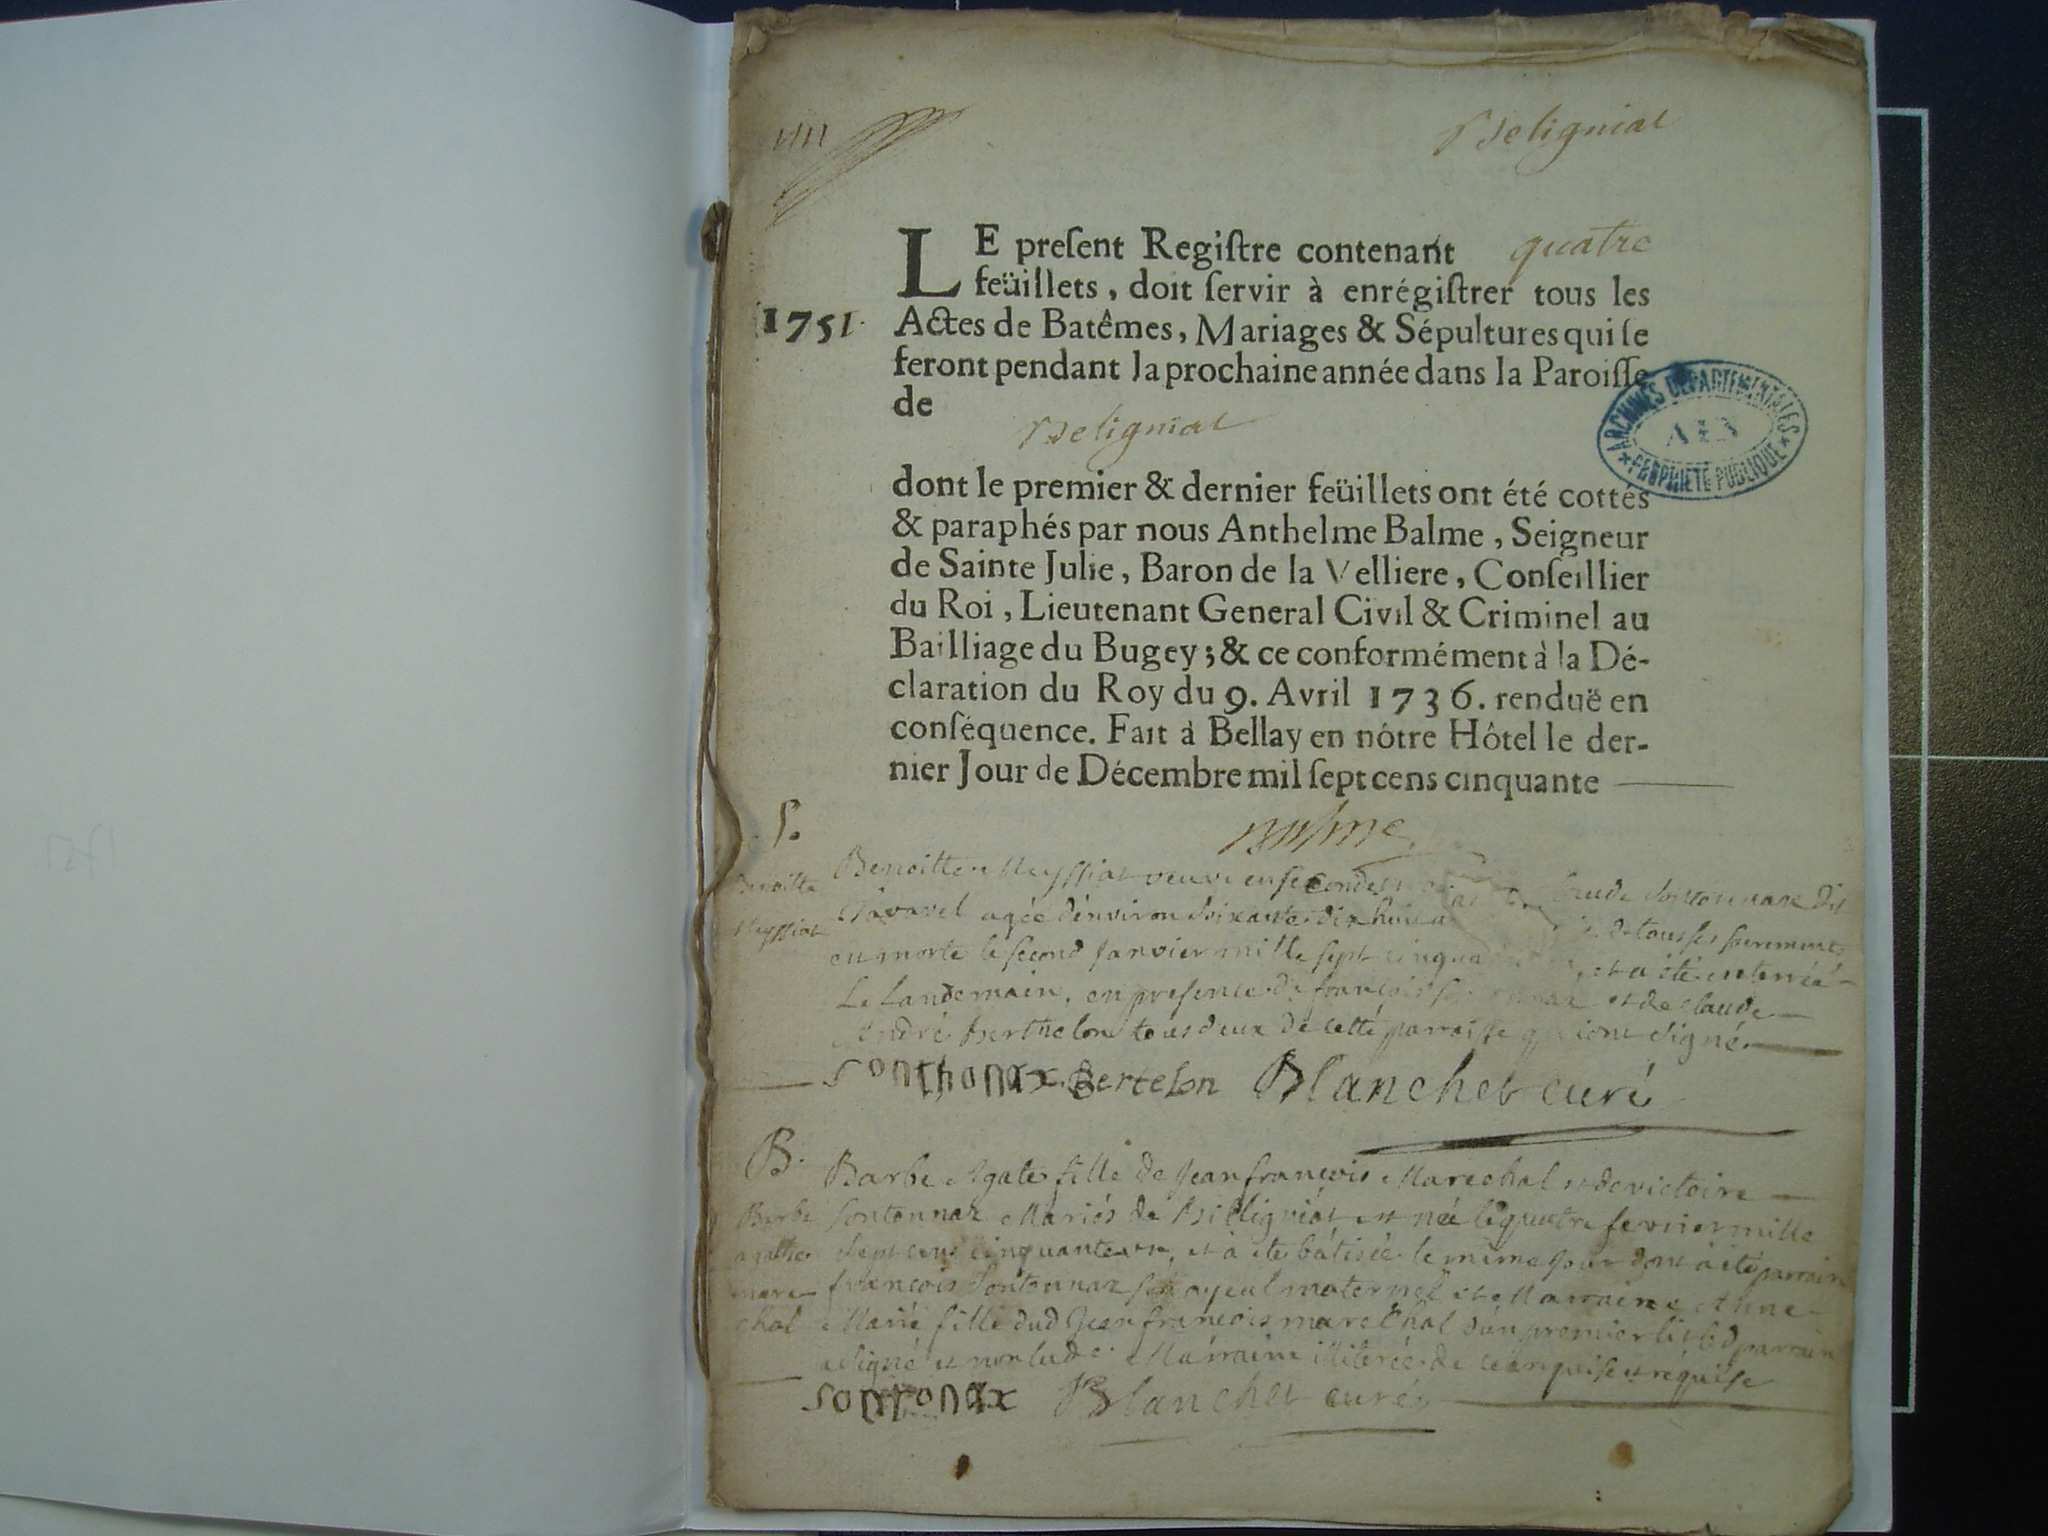 Beligniat
LE preſent Regiſtre contenant quatre
feüillets, doit ſervir à enrégiſtrer tous les
1751. Actes de Batêmes, Mariages & Sépultures qui ſe
feront pendant la prochaine année dans la Paroiſſe
de
Beligniat
ARCHIVES DEPARTEMENTALES
AIN
PROPRIETE PUBLIQUE
dont le premier & dernier feüillets ont été cottés
& paraphés par nous Anthelme Balme, Seigneur
de Sainte Julie, Baron de la Velliere, Conſeillier
du Roi, Lieutenant General Civil & Criminel au
Bailliage du Bugey; & ce conformément à la Dé-
claration du Roy du 9. Avril 1736. renduë en
conſéquence. Fait à Bellay en nôtre Hôtel le der-
nier Jour de Décembre mil ſept cens cinquante
Balme
S.
Benoitte Meyssiat veuve en secondes Claude Sontonnax dit
Benoitte
Meyssiat
agée d'environ soixante dix huit de tous ses sacrements
est morte le second janvier mille sept cinqua et a été enterrée
Le Landemain, en presence de françois et de claude
André Berthelon tous deux de cette parroisse qui ont signé.
sonthonax Bertelon Blanchet curé
B.
Barbe Agate fille de jean françois Marechal et de victoire
Barbe
agathe
mare-
chal
Sontonnax Mariés de Beligniat est née le quatre fevrier mille
sept cens cinquante un, et à été batisée le même jour dont à été parrain
françois Sontonnax son ayeul maternel et Marraine Anne
Marie fille dud jean françois marechal d'un premier lit led parrain
a signé et non lade Marraine illiterée de ce enquise et requise
sontonax Blanchet curé